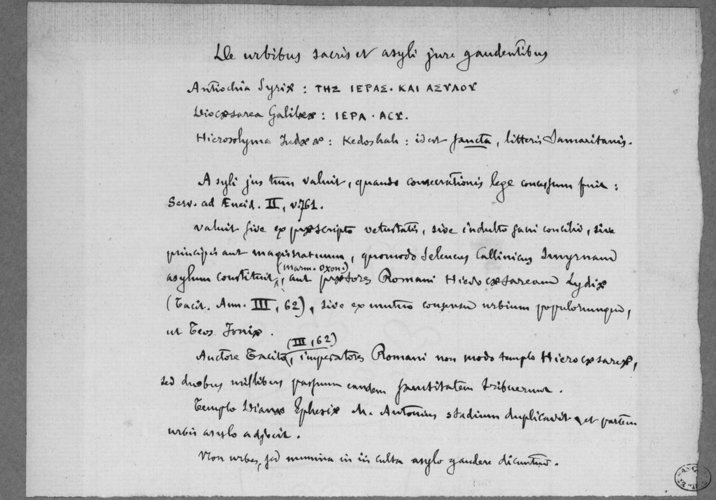 De urbibus sacris et asyli jure gaudentibus
Antiochia Syriæ : ΤΗΣ ΙΕΡΑΣ · ΚΑΙ ΑΣΥΛΟΥ
Diocæsarea Galileæ : ΙΕΡΑ · ΑCΥ.
Hierosolyma Judææ : Kedoshah : id est sancta, litteris Samaritanis.
Asyli jus tum valuit, quando consecrationis lege concessum fuit :
Serv. ad Eneid. II, v. 761.
valuit sive ex præscripto vetustatis, sive indulto sacri concilii, sive
principis aut magistratuum, quomodo Seleucus Callinicus Smyrnam
asylum constituit (Marm. Oxon.), aut prætores Romani Hierocæsaream Lydiæ
(Tacit. Ann. III, 62), sive ex mutuo consensu urbium populorumque,
ut Teos Ioniæ.
Auctore Tacito (III, 62), imperatores Romani non modo templo Hierocæsareæ,
sed duobus millibus passuum eandem sanctitatem tribuerunt.
Templo Dianæ Ephesiæ M. Antonius stadium duplicavit et partem
urbis asylo adjecit.
Non urbes, sed numina in iis culta asylo gaudere dicuntur.